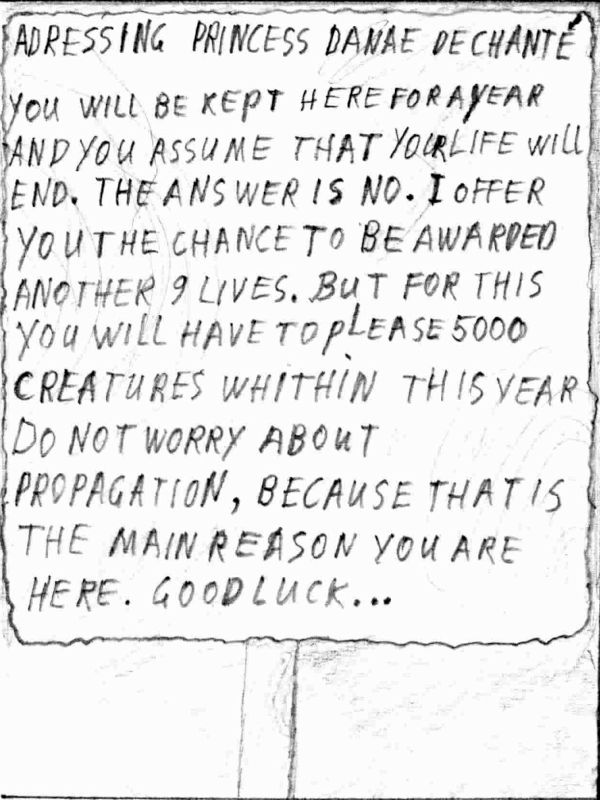 ADRESSING PRINCESS DANAE DECHANTÉ
YOU WILL BE KEPT HERE FOR A YEAR
AND YOU ASSUME THAT YOUR LIFE WILL
END. THE ANSWER IS NO. I OFFER
YOU THE CHANCE TO BE AWARDED
ANOTHER 9 LIVES. BUT FOR THIS
YOU WILL HAVE TO PLEASE 5000
CREATURES WHITHIN THIS YEAR
DO NOT WORRY ABOUT
PROPAGATION, BECAUSE THAT IS
THE MAIN REASON YOU ARE
HERE. GOOD LUCK...